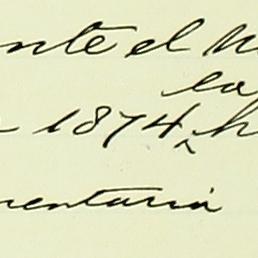 nte el
ea
1874, h
mentaria